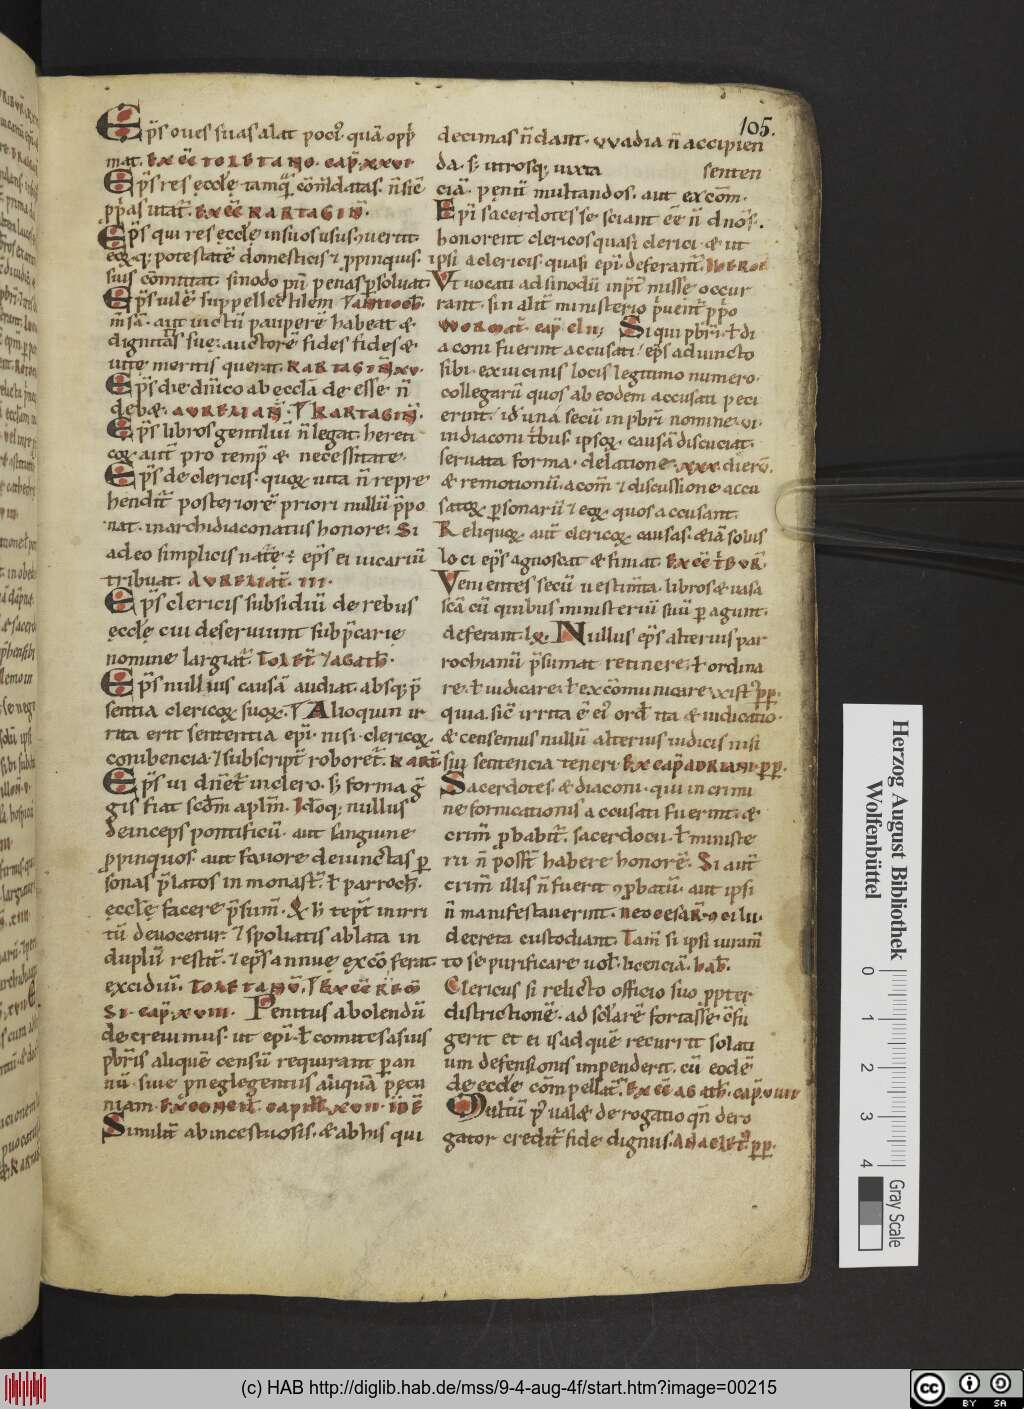 105.
Ep̄s oues suas alat poci᷒. quā opp̄
mat. EX CC̄ TOLETANO. CAP̄. XXVI.
Ep̄s res ęccłę tamq̄ cōm̄datas. ñ siē
pp̄as utat᷑. EX CC̄ KARTAGIN̄.
Ep̄s qui res ęccłę in suos usus ꝯuertit.
ęcꝙ; potestatē domesticis ⁊ ꝓpinquis.
suis cōmittat. sinodo pn̄ penas ꝑsoluat.
Ep̄s uilē suppellectilem ⁊
m̄sā. aut uictū pauperē habeat &
dignitas suę auctore fides fides &
uitę meritis querat. KARTAGIN̄. XV.
Ep̄s die dn̄ico ab ecclā de esse ñ
debæ. AVRELIAN̄. ⁊ KARTAGIN̄.
Ep̄s libros gentiliū ñ legat. hereti
coꝝ aut̄ pro temp̄ & necessitate.
Ep̄s de clericis. quoꝝ uita ñ repre
hendit᷑ posteriorē priori nullū p̄po
nat. in archidiaconatus honore. Si
adeo simplicis natę ē. ep̄s ei uicariū
tribuat. AVRELIAT̄. III.
Ep̄s clericis subsidiū de rebus
ęccłę cui deseruiunt sub p̄carię
nomine largiat᷑. TOLET̄. ⁊ AGATH̄.
Ep̄s nullius causā audiat. absq; p̄
sentia clericoꝝ suoꝝ. ⁊ Alioquin ir
rita erit sententia ep̄i. nisi clericoꝝ
conibencia. ⁊ subscript̄ roboret᷑. KART̄.
Ep̄s ui dn̄et᷑ in clero. s; forma ḡ
gis fiat scd̄m aplm̄. Idoq; nullus
deinceps pontificū. aut sanguine
ꝓpinquos. aut fauore deiunctas ꝑ
sonas p̄latos in monast̄. ł parroch̄.
ęccłę facere p̄sum̄. & h̄ tep̄t inirri
tū deuocetur. ⁊ spoliatis ablata in
duplū restit̄. ⁊ ep̄s annuę ęxcō ferat.
excidiū. TOLETANV̄.
SI. CAP̄. XVIII. Penitus abolendū
decreuimus. ut ep̄i. ł comites asius
p̄bris aliquē censū requirant ꝑ an
nū. siue ꝑ neglegentiis aliquā ꝑecu
niam.
Similit̄ ab incestuosis. & ab his qui
decimas ñ dant. wadia ñ accipien
da. s; utrosq; iuxta senten
ciā. penū multandos. aut excōm.
Ep̄i sacerdotes se sciant eē ñ dn̄os.
honorent clericos quasi clerici. & ut
ipsi a clericis. quasi ep̄i deferant᷑.
Vt uocati ad sinodū inp̄t misse occur
rant. sin alit̄ ministerio p̄uenit̄ p̄po
WORMAT̄. Si qui p̄bri. ł di
aconi fuerint accusati. ep̄s adiuncto
sibi. ex uicinis locis legitimo numero.
collegarū quos ab eodem accusati peci
erint. id̄ una secū in p̄bri nomine. vi.
in diaconi t̄bus. ipsoꝝ causā discuciat.
seruata forma. delatione. xxx. dierū.
& remotionū. a com̄ ⁊ discussione accu
satoꝝ ꝑsonarū ⁊ eoꝝ quos accusant.
Reliquoꝝ aut̄ clericoꝝ causas. & iā solus
loci ep̄s agnoscat & finiat. EX CC̄ TBVR̄.
Venientes secū uestim̄ta. libros & uasa
sc̄a cū quibus ministeriū suū ꝑagunt.
deferant. lx. Nullus ep̄s alterius par
rochianū p̄sumat retinere. ł ordina
re. ł iudicare. ł excōmunicare
quia sic̄ irrita ē ei᷒ ord̄ ita & iudicatio.
& censemus nullū alterius iudicis nisi
sui sentencia teneri. EX CAP̄ ADRIANI. PP̄.
Sacerdotes. & diaconi. qui in crimi
ne fornicationis accusati fuerint. &
crim̄ ꝓbabit᷑. sacerdocii. ł ministe
rii ñ poss̄t habere honorē. Si aut̄
crim̄ illis ñ fuerit ꝯꝓbatū. aut ipsi
ñ manifestauerint.
decreta custodiant. Tam̄ si ipsi iuram̄
to se purificare uol̄. licenciā. hab̄.
Clericus si relicto officio suo ꝓpter
districtionē. ad sclarē fortasse ꝯfu
gerit et ei is ad quē recurrit solati
um defensionis impenderit. cū eodē
de ęccłe cōmpellat᷑. EX CC̄ AGATH̄. CAP̄. VIII
Multū p̄ualæ derogatio qn̄ dero
gator credit᷑ fide dignus. ANACLET᷒. PP̄.
Herzog August Bibliothek
Wolfenbüttel
0 1 2 3 4
Gray Scale
(c) HAB http://diglib.hab.de/mss/9-4-aug-4f/start.htm?image=00215
cc BY SA